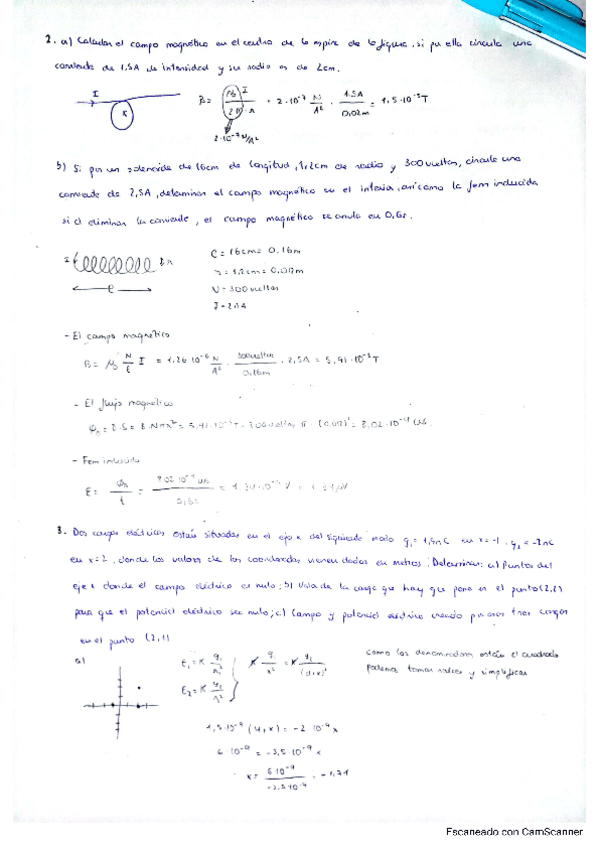 2. a) Calcular el campo magnético en el centro de la espira de la figura, si por ella circula una
corriente de 1,5A de intensidad y su radio es de 2cm.
I
B = μ₀ I / 2π·A = 2·10⁻⁷ N/A² · 1.5A / 0.02m = 1,5·10⁻⁵ T
2·10⁻⁷ N/A²
b) Si por un solenoide de 16cm de longitud, 1,2cm de radio y 300 vueltas, circula una
corriente de 2,5A, determinar el campo magnético en el interior, así como la fem inducida
si al eliminar la corriente, el campo magnético se anula en 0,6s.
C = 16cm = 0.16m
r = 1.2cm = 0.012m
N = 300 vueltas
ℓ
- El campo magnético
B = μ₀ N/ℓ I = 1.26·10⁻⁶ N/A² · 300 vueltas / 0.16m · 2,5A = 5,91·10⁻³ T
- El flujo magnético
- Fem inducida
3. Dos cargas eléctricas están situadas en el eje x del siguiente modo q₁ = 1,5nC en x=-1, q₂ = -2nC
en x=2, donde los valores de las coordenadas vienen dados en metros. Determinar: a) Puntos del
eje x donde el campo eléctrico es nulo; b) Valor de la carga que hay que poner en el punto (2,2)
para que el potencial eléctrico sea nulo; c) Campo y potencial eléctrico creado por esas tres cargas
en el punto (2,1)
a)
E₁ = K q₁/r₁²
E₂ = K q₂/r₂²
como los denominadores están al cuadrado
podemos tomar raíces y simplificar
1,5·10⁻⁹ (4+x) = -2·10⁻⁹ x
6·10⁻⁹ = -3,5·10⁻⁹ x
x = 6·10⁻⁹ / -3.5·10⁻⁹ = -1,71
Escaneado con CamScanner